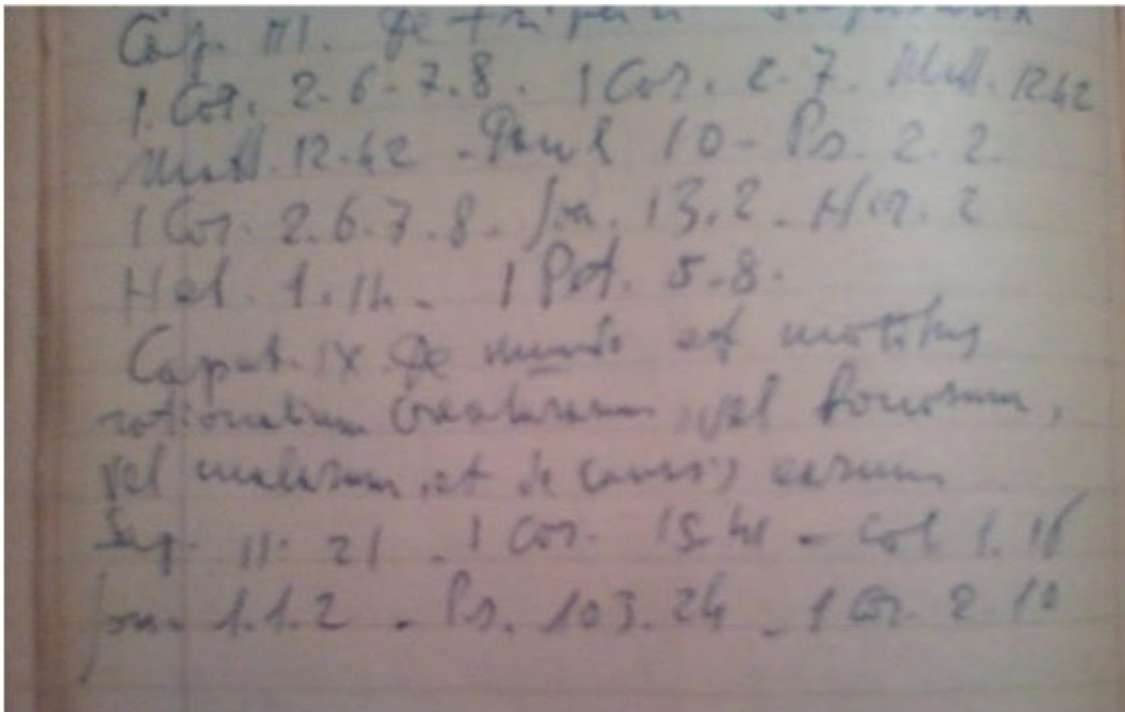 Cap. III. De triplici sapientia
1 Cor. 2.6.7.8. 1 Cor. 2.7. Matt. 12.42
Matt. 12.42 - 10 - Ps. 2.2.
1 Cor. 2.6.7.8. Joa. 13.2 - 2
1.14 - 1 Pet. 5.8.
Caput. IX. De mundo et motibus
rationalium creaturarum, vel bonorum,
vel malorum, et de causis earum
Sap. 11. 21 - 1 Cor. 15.41 - Col 1.16
Joan. 1.1.2 - Ps. 103.24 - 1 Cor. 2 10